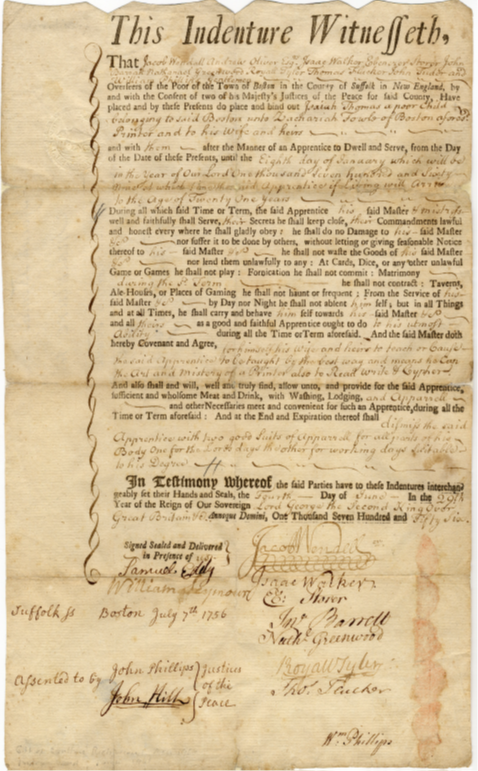 This Indenture Witnesseth,
That Jacob Wendell Andrew Oliver Esqrs. Isaac Walker Ebenezer Storer John
Barrett Nathaniel Greenwood Royall Tyler Thomas Flucker John Tudor and
William Phillips Gentlemen
Overseers of the Poor of the Town of Boston in the County of Suffolk in New England, by
and with the Consent of two of his Majesty's Justices of the Peace for said County, Have
placed and by these Presents do place and bind out Isaiah Thomas a poor Child
belonging to said Boston unto Zachariah Fowle of Boston aforesd
Printer and to his Wife and heirs
and with them after the Manner of an Apprentice to Dwell and Serve, from the Day
of the Date of these Presents, until the Eighth day of January which will be
in the year of Our Lord One thousand Seven hundred and Seventy
time at which said Apprentice if Living will Arrive
to the Age of Twenty One years
During all which said Time or Term, the said Apprentice his said Master & mistress
well and faithfully shall Serve, their Secrets he shall keep close, their Commandments lawful
and honest every where he shall gladly obey: he shall do no Damage to his said Master
&c nor suffer it to be done by others, without letting or giving seasonable Notice
thereof to his said Master &c he shall not waste the Goods of his said Master
&c nor lend them unlawfully to any: At Cards, Dice, or any other unlawful
Game or Games he shall not play: Fornication he shall not commit: Matrimony
during the sd. Term he shall not contract: Taverns,
Ale-Houses, or Places of Gaming he shall not haunt or frequent: From the Service of his
said Master &c by Day nor Night he shall not absent him self; but in all Things
and at all Times, he shall carry and behave him self towards his said Master &c
and all theirs as a good and faithful Apprentice ought to do to his utmost
Ability during all the Time or Term aforesaid. And the said Master doth
hereby Covenant and Agree,
for himself his Wife and heirs to teach or Cause
the said Apprentice to be taught by the best way and means he Can
the Art and mistery of a Printer also to Read write & Cypher
And also shall and will, well and truly find, allow unto, and provide for the said Apprentice,
sufficient and wholsome Meat and Drink, with Washing, Lodging, and Apparrell
and other Necessaries meet and convenient for such an Apprentice, during all the
Time or Term aforesaid: And at the End and Expiration thereof shall
dismiss the said
Apprentice with two good Suits of Apparrell for all parts of his
Body One for the Lords days the other for working days Suitable
to his Degree
In Testimony whereof the said Parties have to these Indentures interchan-
geably set their Hands and Seals, the Fourth Day of June In the 29th
Year of the Reign of Our Sovereign Lord George the Second King Over
Great Britain &c Annoque Domini, One Thousand Seven Hundred and Fifty Six.
Signed Sealed and Delivered
in Presence of us
Jacob Wendell
Samuel Eddy
William
Isaac Walker
Eb: Storer
Suffolk ss Boston July 7th 1756
Jno. Barrett
Nathl. Greenwood
Assented to by John Phillips Justices
John Hill of the
Peace
Royall Tyler
Thos. Flucker
Wm. Phillips